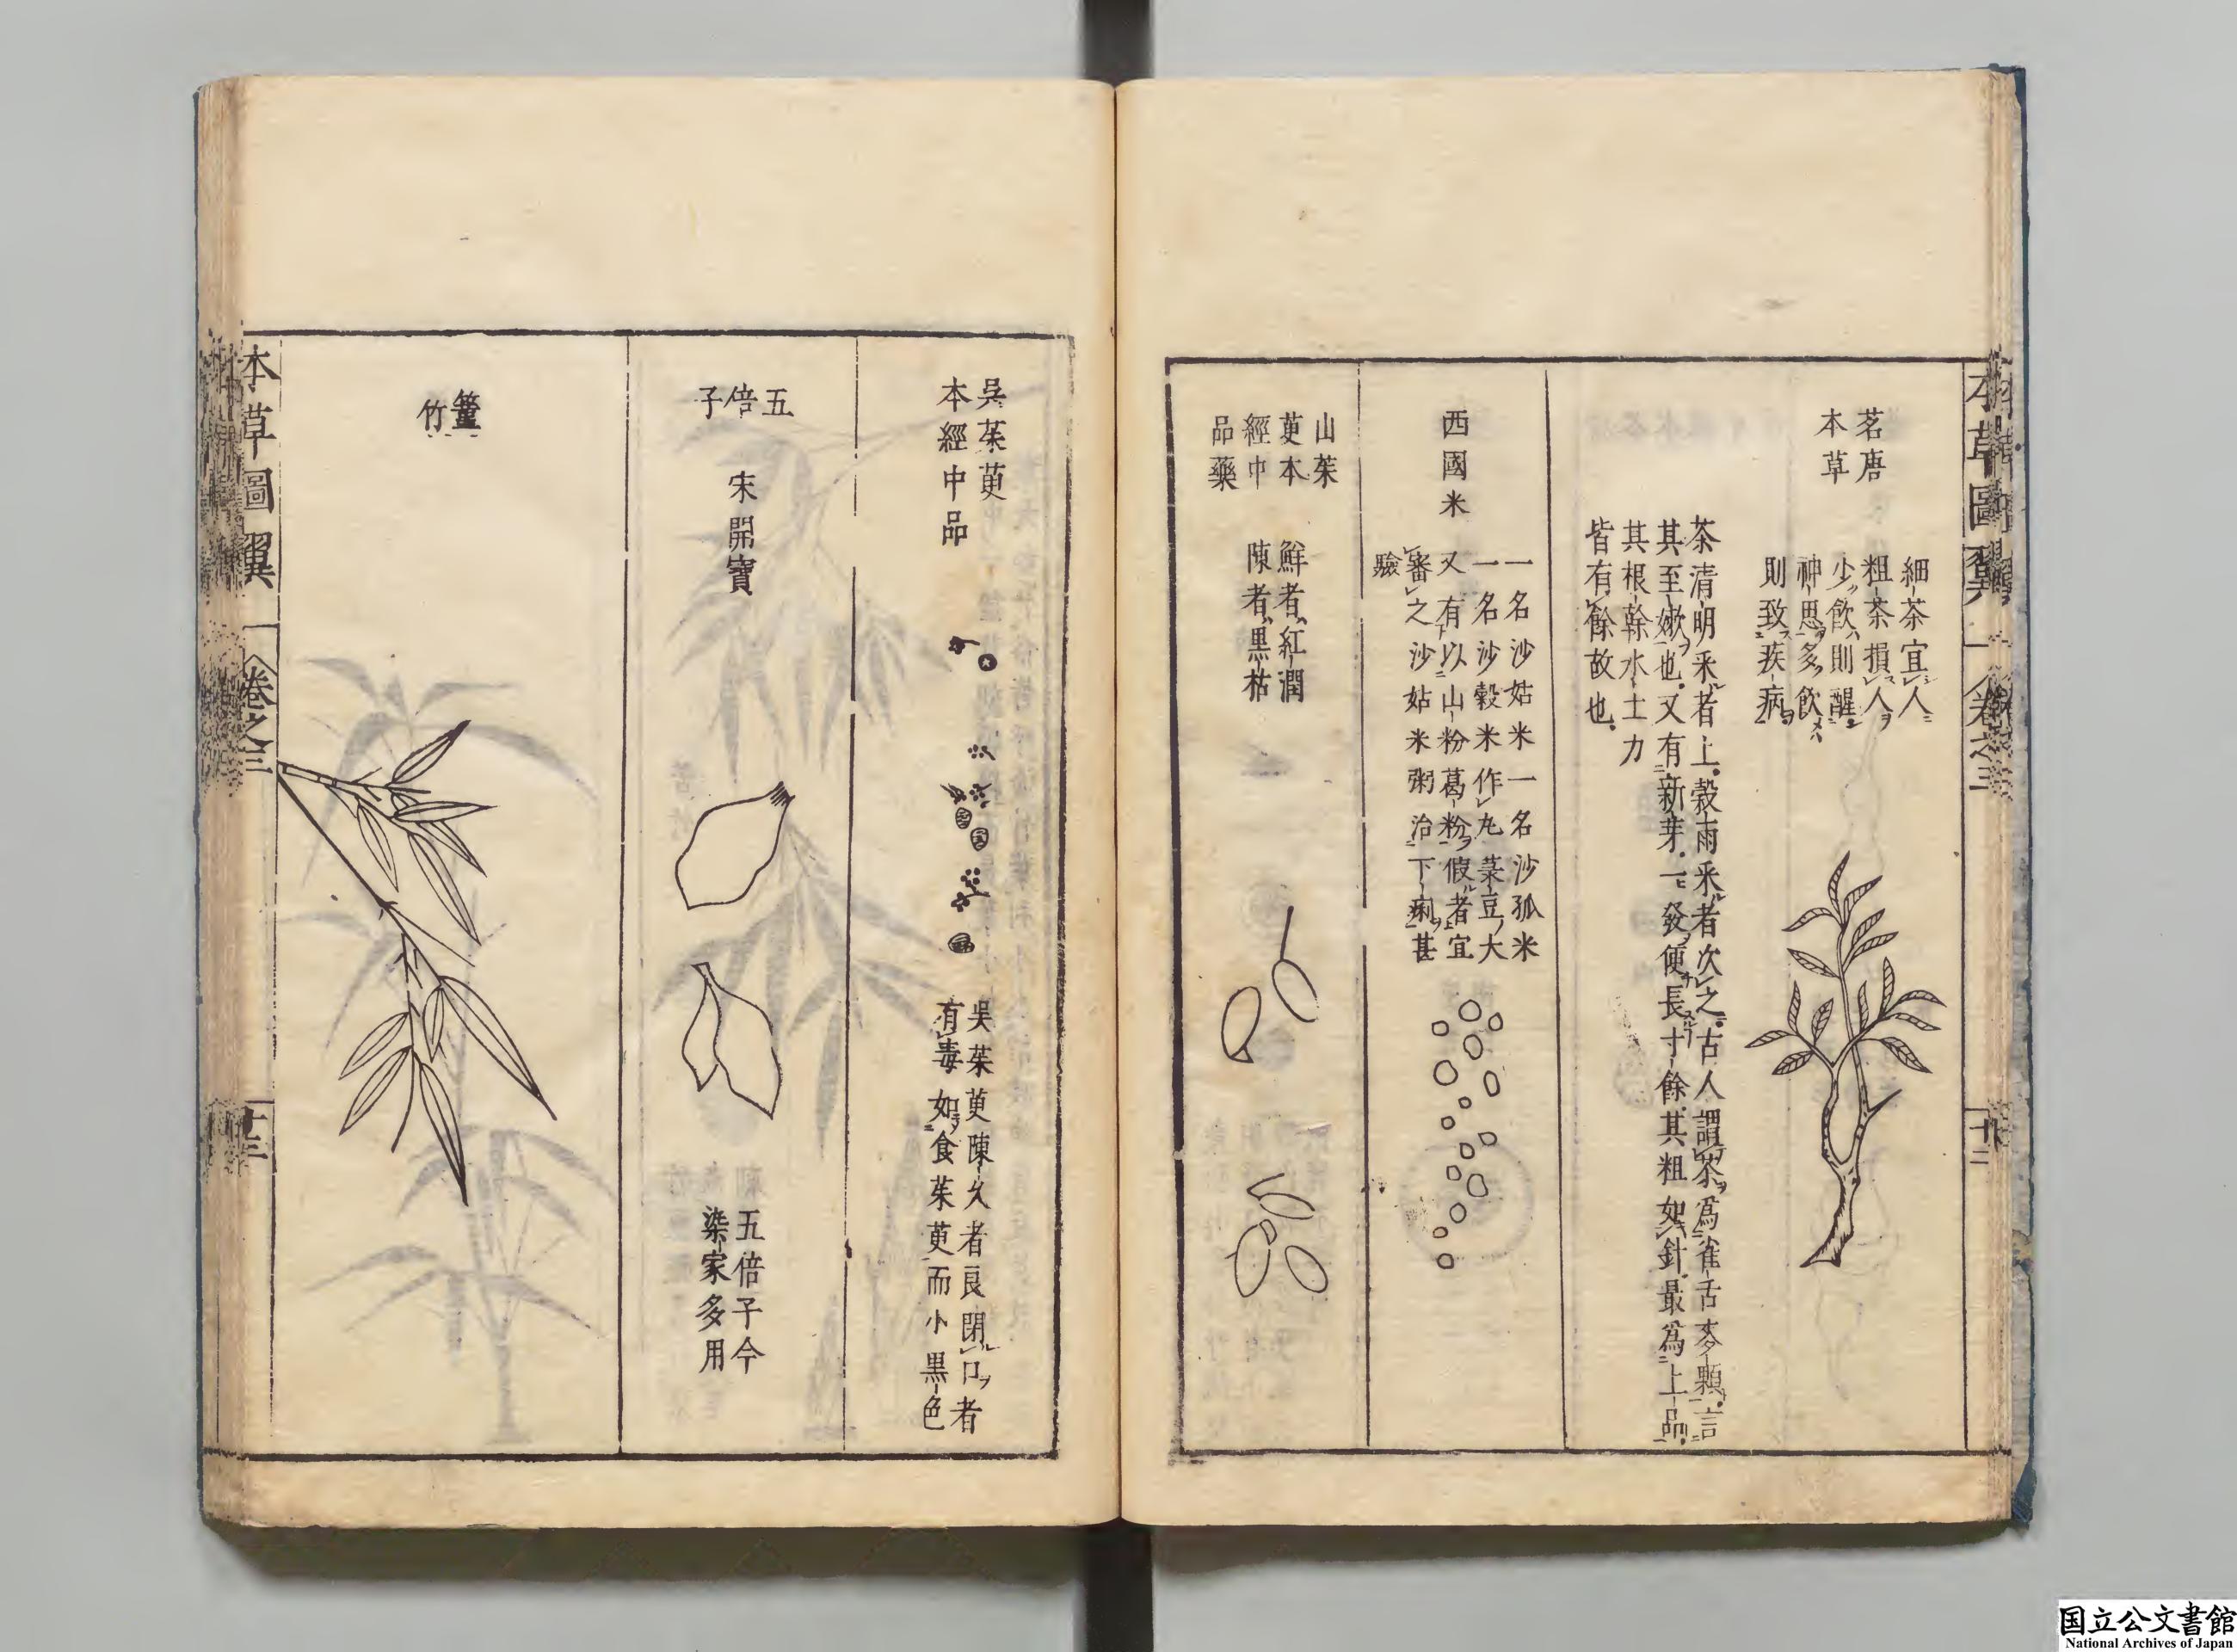 本草圖翼
卷之三
十二
茗唐
本草
細茶宜人
粗茶損人ヲ
少ク飲ハ則醒ニ
神思ヲ多ク飲メハ
則致ス疾病ヲ
茶清明采ル者上穀雨采ル者次之古人謂茶ヲ爲雀舌麥顆言
其至嫩ヲ也又有新芽一ヒ發ヲ便長寸餘其粗如針最爲上品
其根幹水土力
皆有餘故也
西國米
一名沙姑米一名沙孤米
一名沙穀米作丸菉豆ノ大
又有以山粉葛粉ヲ假ル者宜
審之沙姑米粥治下痢ヲ甚
驗
山茱
萸本
經中
品藥
鮮者紅潤
陳者黒枯
吳茱萸
本經中品
吳茱萸陳久者良閉ル口ヲ者
有毒如食茱萸而小黒色
五倍子
宋開寶
五倍子今
染家多用
䉋
竹
本草圖翼
卷之三
十三
国立公文書館
National Archives of Japan